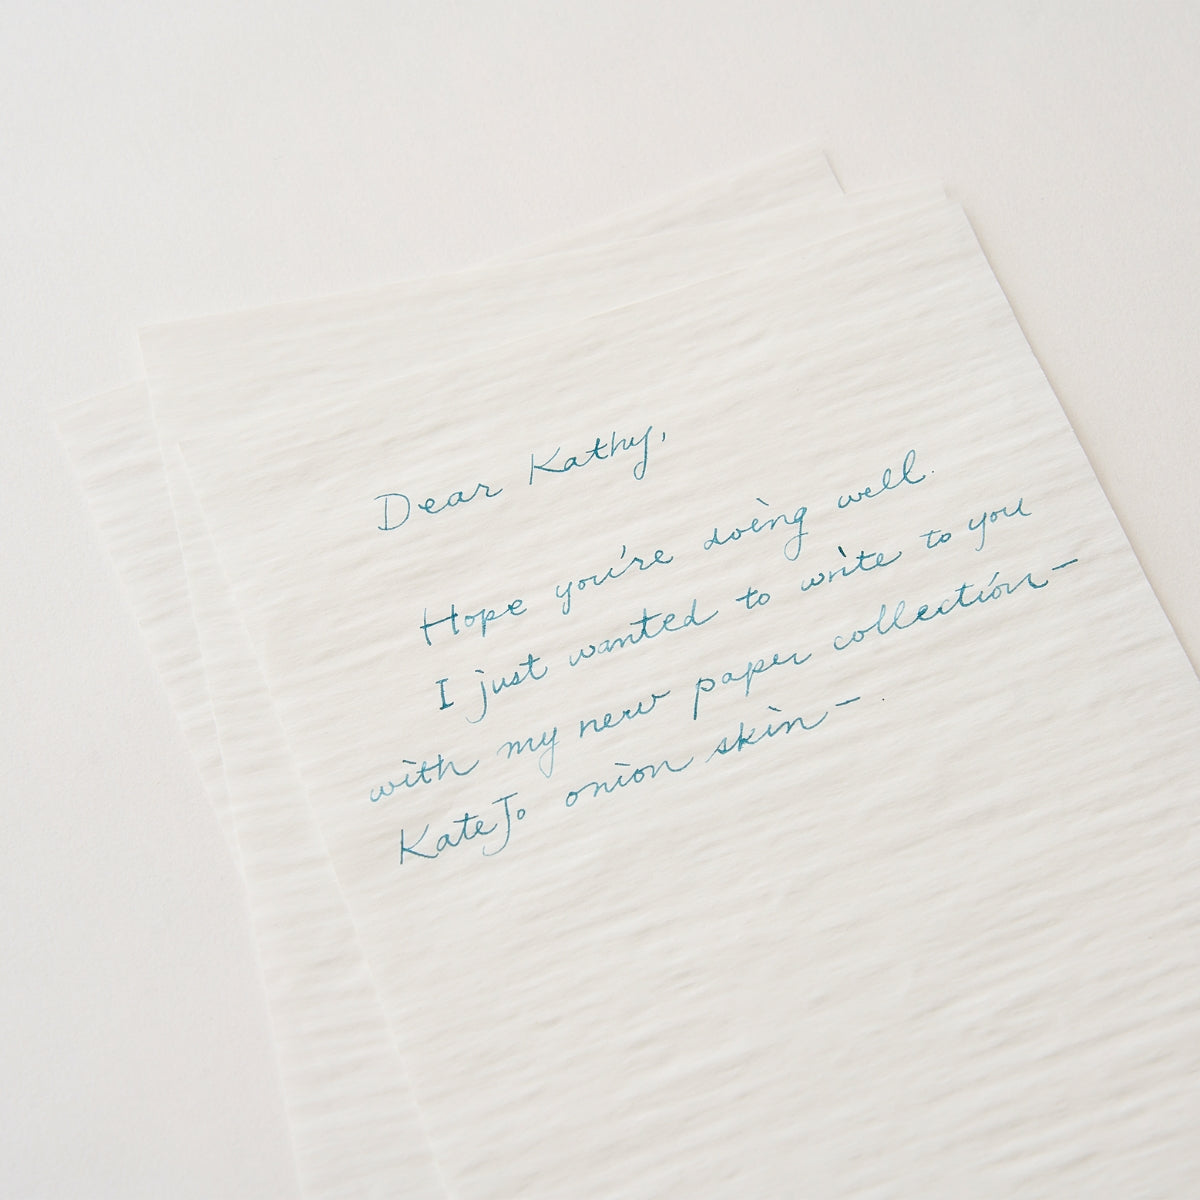 Dear Kathy,
Hope you're doing well.
I just wanted to write to you
with my new paper collection—
KateJo onion skin—.